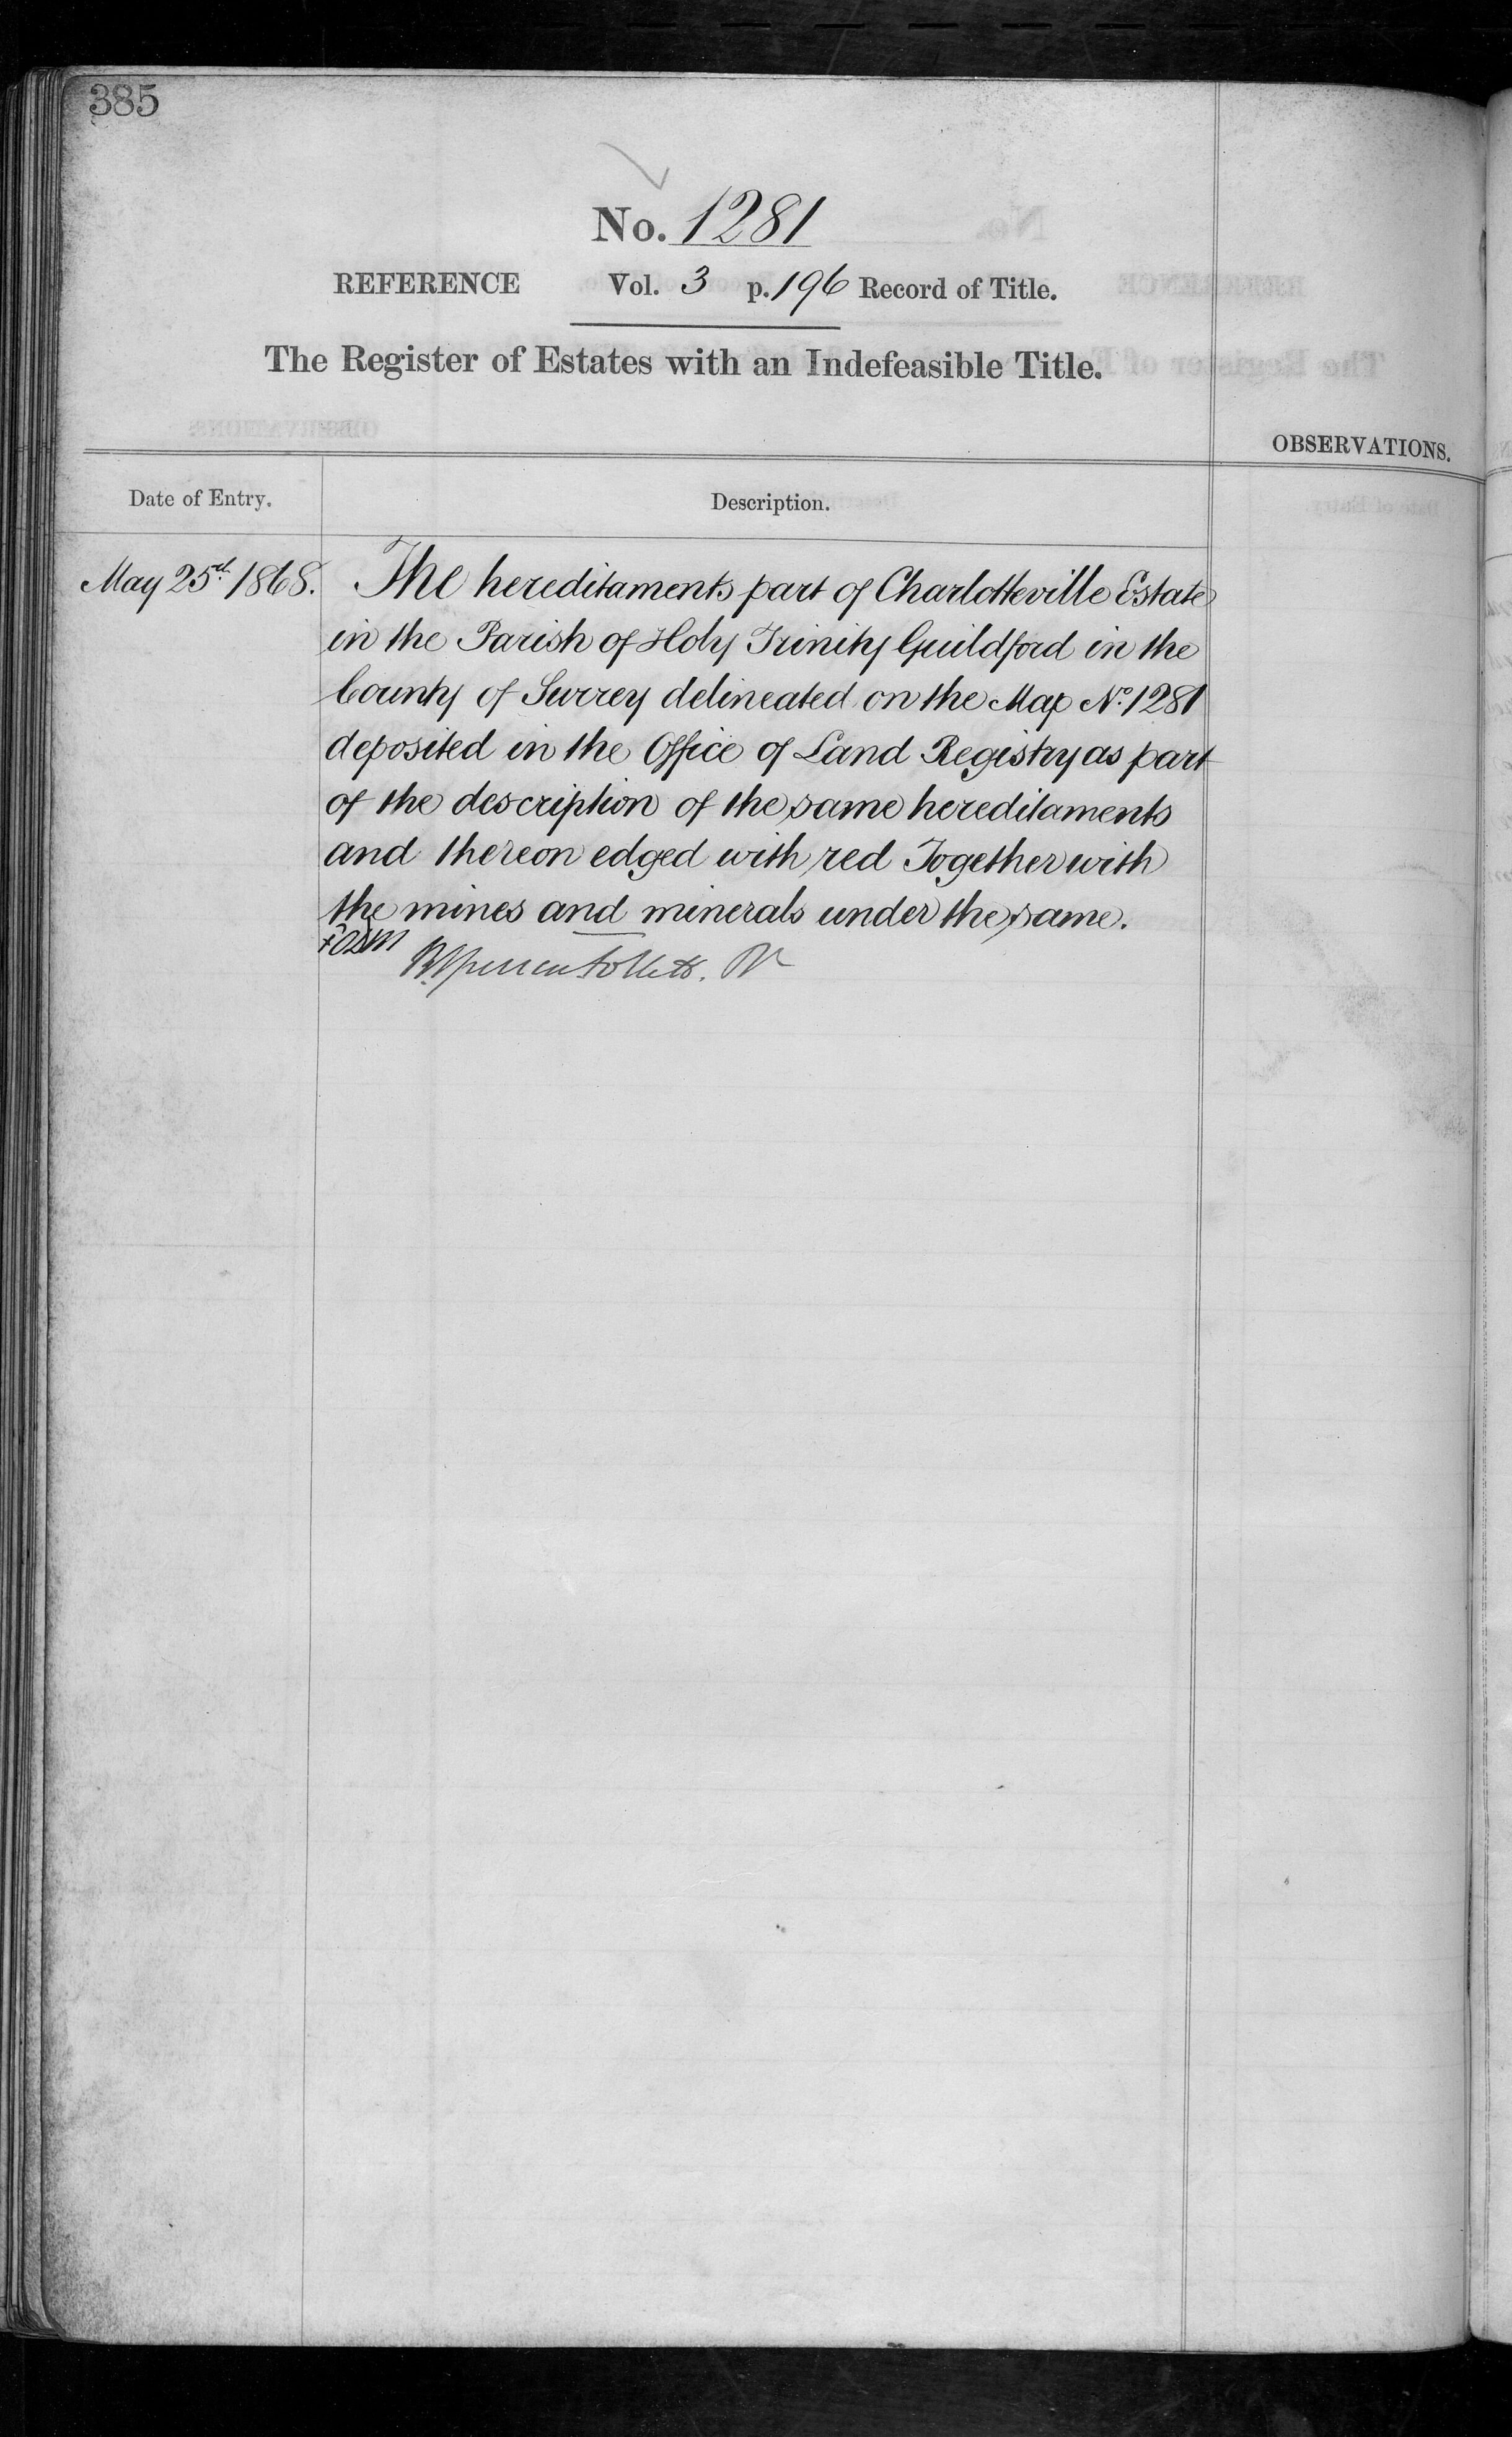 385
No. 1281
REFERENCE Vol. 3 p. 196 Record of Title.
The Register of Estates with an Indefeasible Title.
OBSERVATIONS.
Date of Entry.
Description.
May 25th. 1868.
The hereditaments part of Charlotteville Estate
in the Parish of Holy Trinity Guildford in the
County of Surrey delineated on the Map No. 1281
deposited in the Office of Land Registry as part
of the description of the same hereditaments
and thereon edged with red Together with
the mines and minerals under the same.
Follett.